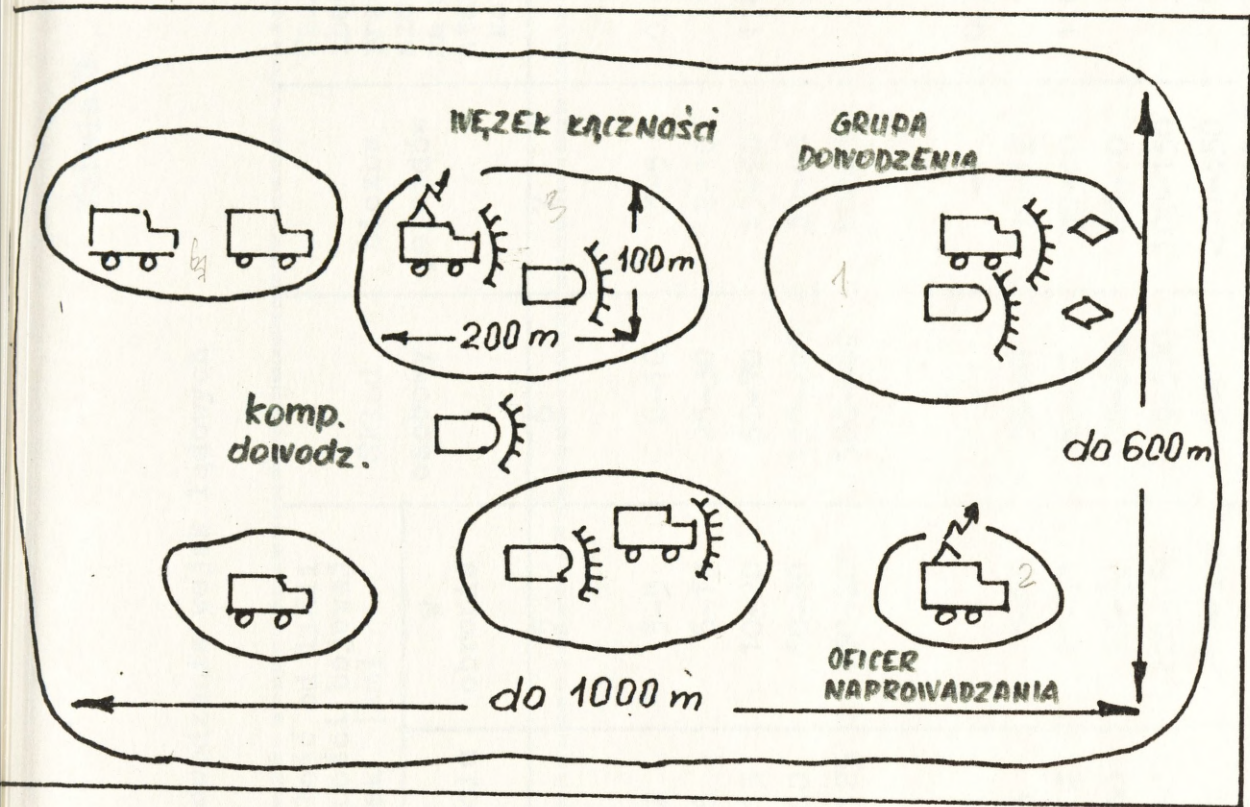 WĘZEŁ ŁĄCZNOŚCI
GRUPA
DOWODZENIA
3
100 m
200 m
1
komp.
dowodz.
do 600 m
2
OFICER
NAPROWADZANIA
do 1000 m